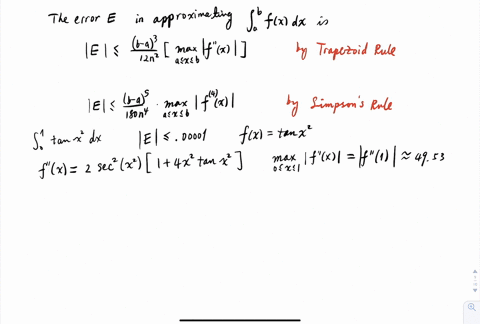 The error E in approximating ∫₀ᵇ f(x) dx is
|E| ≤ (b-a)³/12n² [ max a≤x≤b |f''(x)| ] by Trapezoid Rule
|E| ≤ (b-a)⁵/180n⁴ · max a≤x≤b |f⁽⁴⁾(x)| by Simpson's Rule
∫₀¹ tan x² dx |E| ≤ .00001 f(x) = tan x²
f''(x) = 2 sec²(x²) [ 1 + 4x² tan x² ] max 0≤x≤1 |f''(x)| = |f''(1)| ≈ 49.53